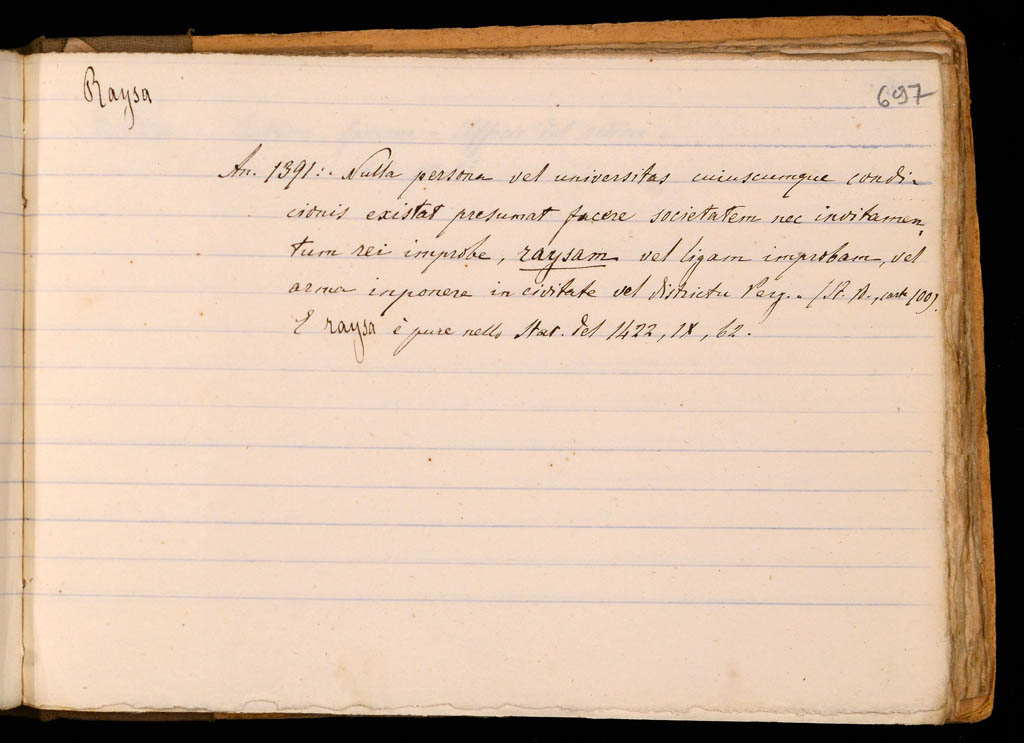 Raysa
697
An. 1391:. Nulla persona vel universitas cuiuscumque condi-
cionis existat presumat facere societatem nec invitamen-
tum rei improbe, raysam vel ligam improbam, vel
arma inponere in civitate vel districtu Pey.. (St. A., carta 100).
E raysa è pure nello Stat. del 1422, IX, 62.